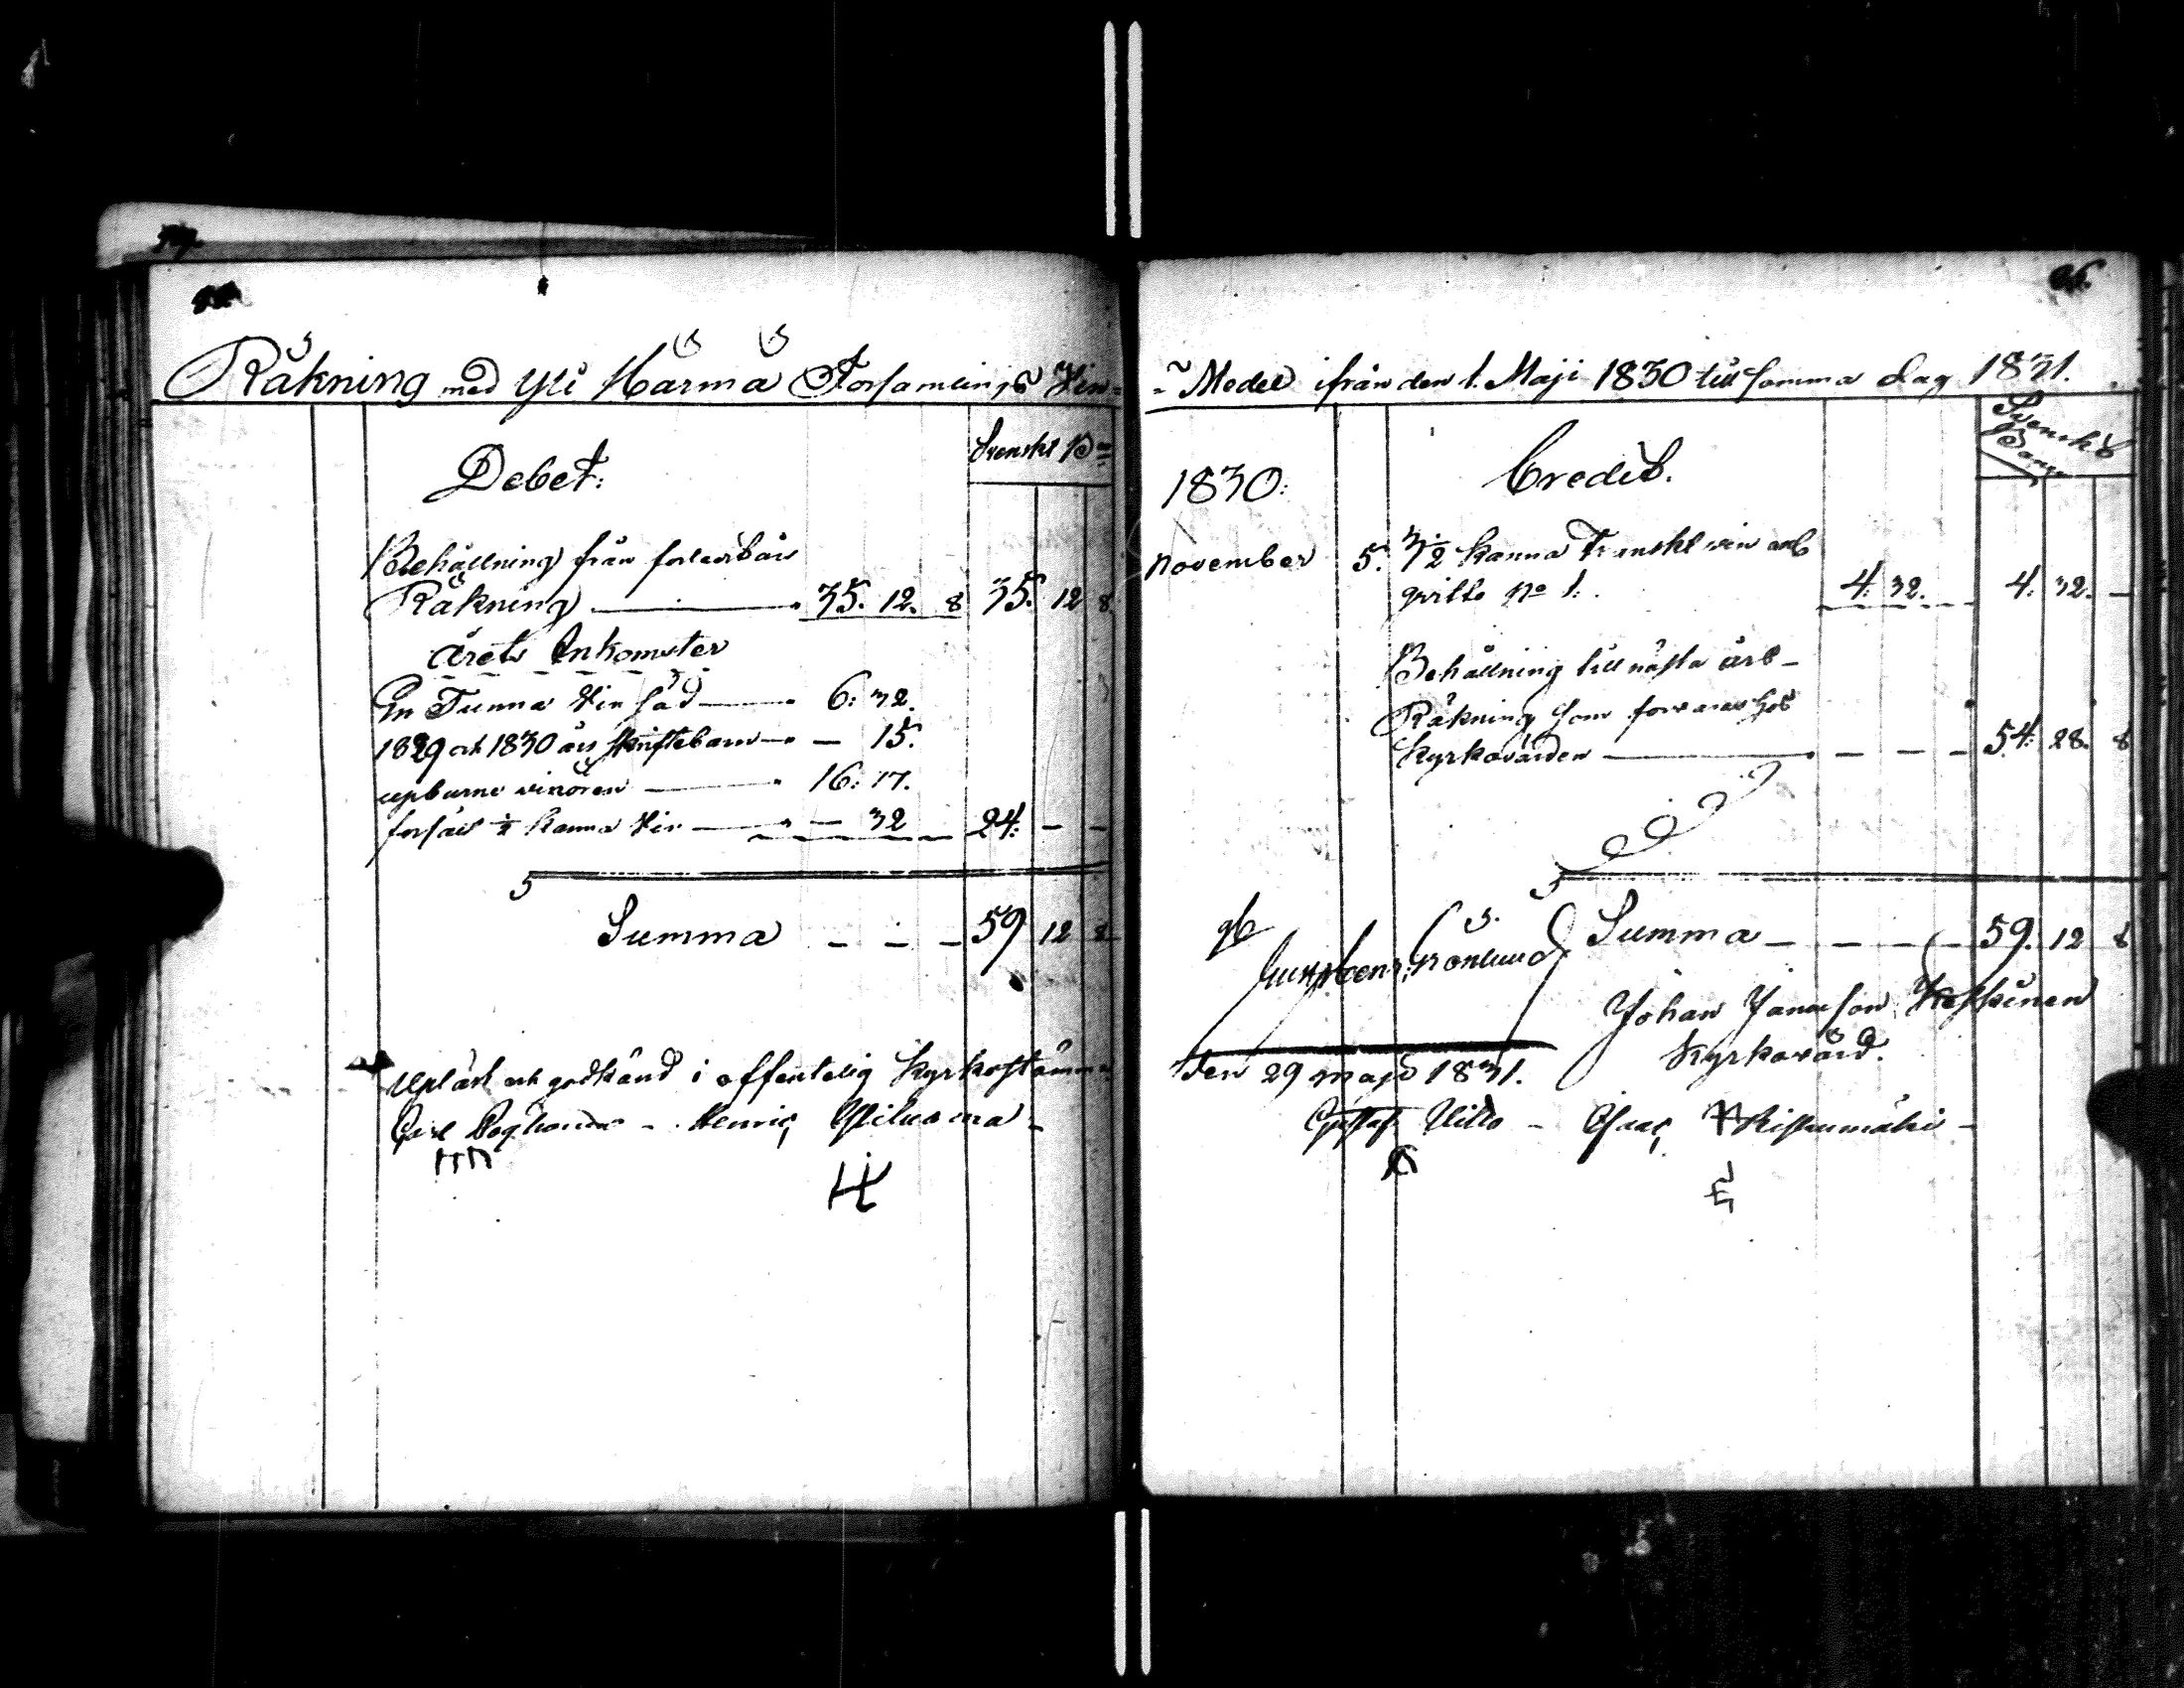 Räkning med Yli Härmä Församlings Vin=
Debet:
Svenskt Bo
Behållning från
Räkning 35. 12. 8 35. 12 8.
Årets Inkomster
En Tunna Vin säd 6: 32.
1829 och 1830 års skriftebarn — 15.
upburne vinören 16: 17.
försålt ½ Kanna Vin — 32 24: — —
Summa — — — 59 12 8
Upläst och godkänd i offentelig Kyrkostämma
Carl — Henric Ylihärmä —
96.
= Medel ifrån den 1. Maji 1830 till samma dag 1831.
Svenskt Banco
1830: Credit.
November 5. 3½ Kanna Franskt vin enl
qvitto No 1: 4: 32. 4: 32. —
Behållning till nästa års —
Räkning som förvaras hos
Kyrkovärden — — — 54: 28. 8
Summa — — — 59. 12 8
Grönlund
Johan Jananson Keskinen
Kyrkovärd.
den 29 maji 1831.
Gustaf — Isaac Ristimäki —